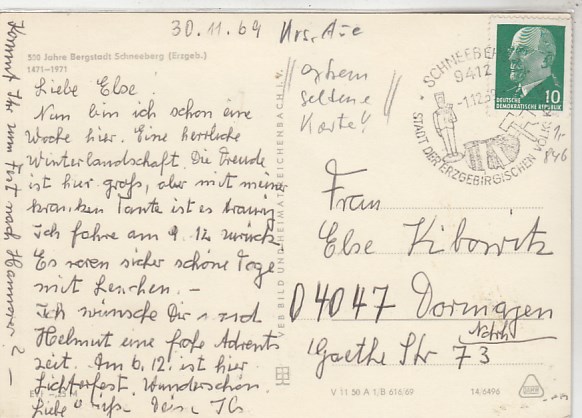 30.11.69 Krs. Aue
500 Jahre Bergstadt Schneeberg (Erzgeb.)
1471-1971
Liebe Else.
Nun bin ich schon eine
Woche hier. Eine herrliche
Winterlandschaft. Die Freude
ist hier groß, aber mit meiner
kranken Tante ist es traurig.
Ich fahre am 9.12. zurück.
Es waren sicher schöne Tage
mit Lenchen. -
Ich wünsche Dir und
Helmut eine frohe Advents
zeit. Am 6.12. ist hier
Lichterfest. Wunderschön
Liebe Grüße Deine
Kommt Ihr zum Fest nach Hannover? -
extrem
seltene
Karte!
SCHNEEBERG
9412
-1.12.69
STADT DER ERZGEBIRGISCHEN VOLKSK
DEUTSCHE
DEMOKRATISCHE REPUBLIK
10
846
VEB BILD UND HEIMAT REICHENBACH I. V.
Frau
Else Kibowitz
D 4047 Dormagen
Goethe Str 73
V 11 50 A 1/B 616/69
14/6496